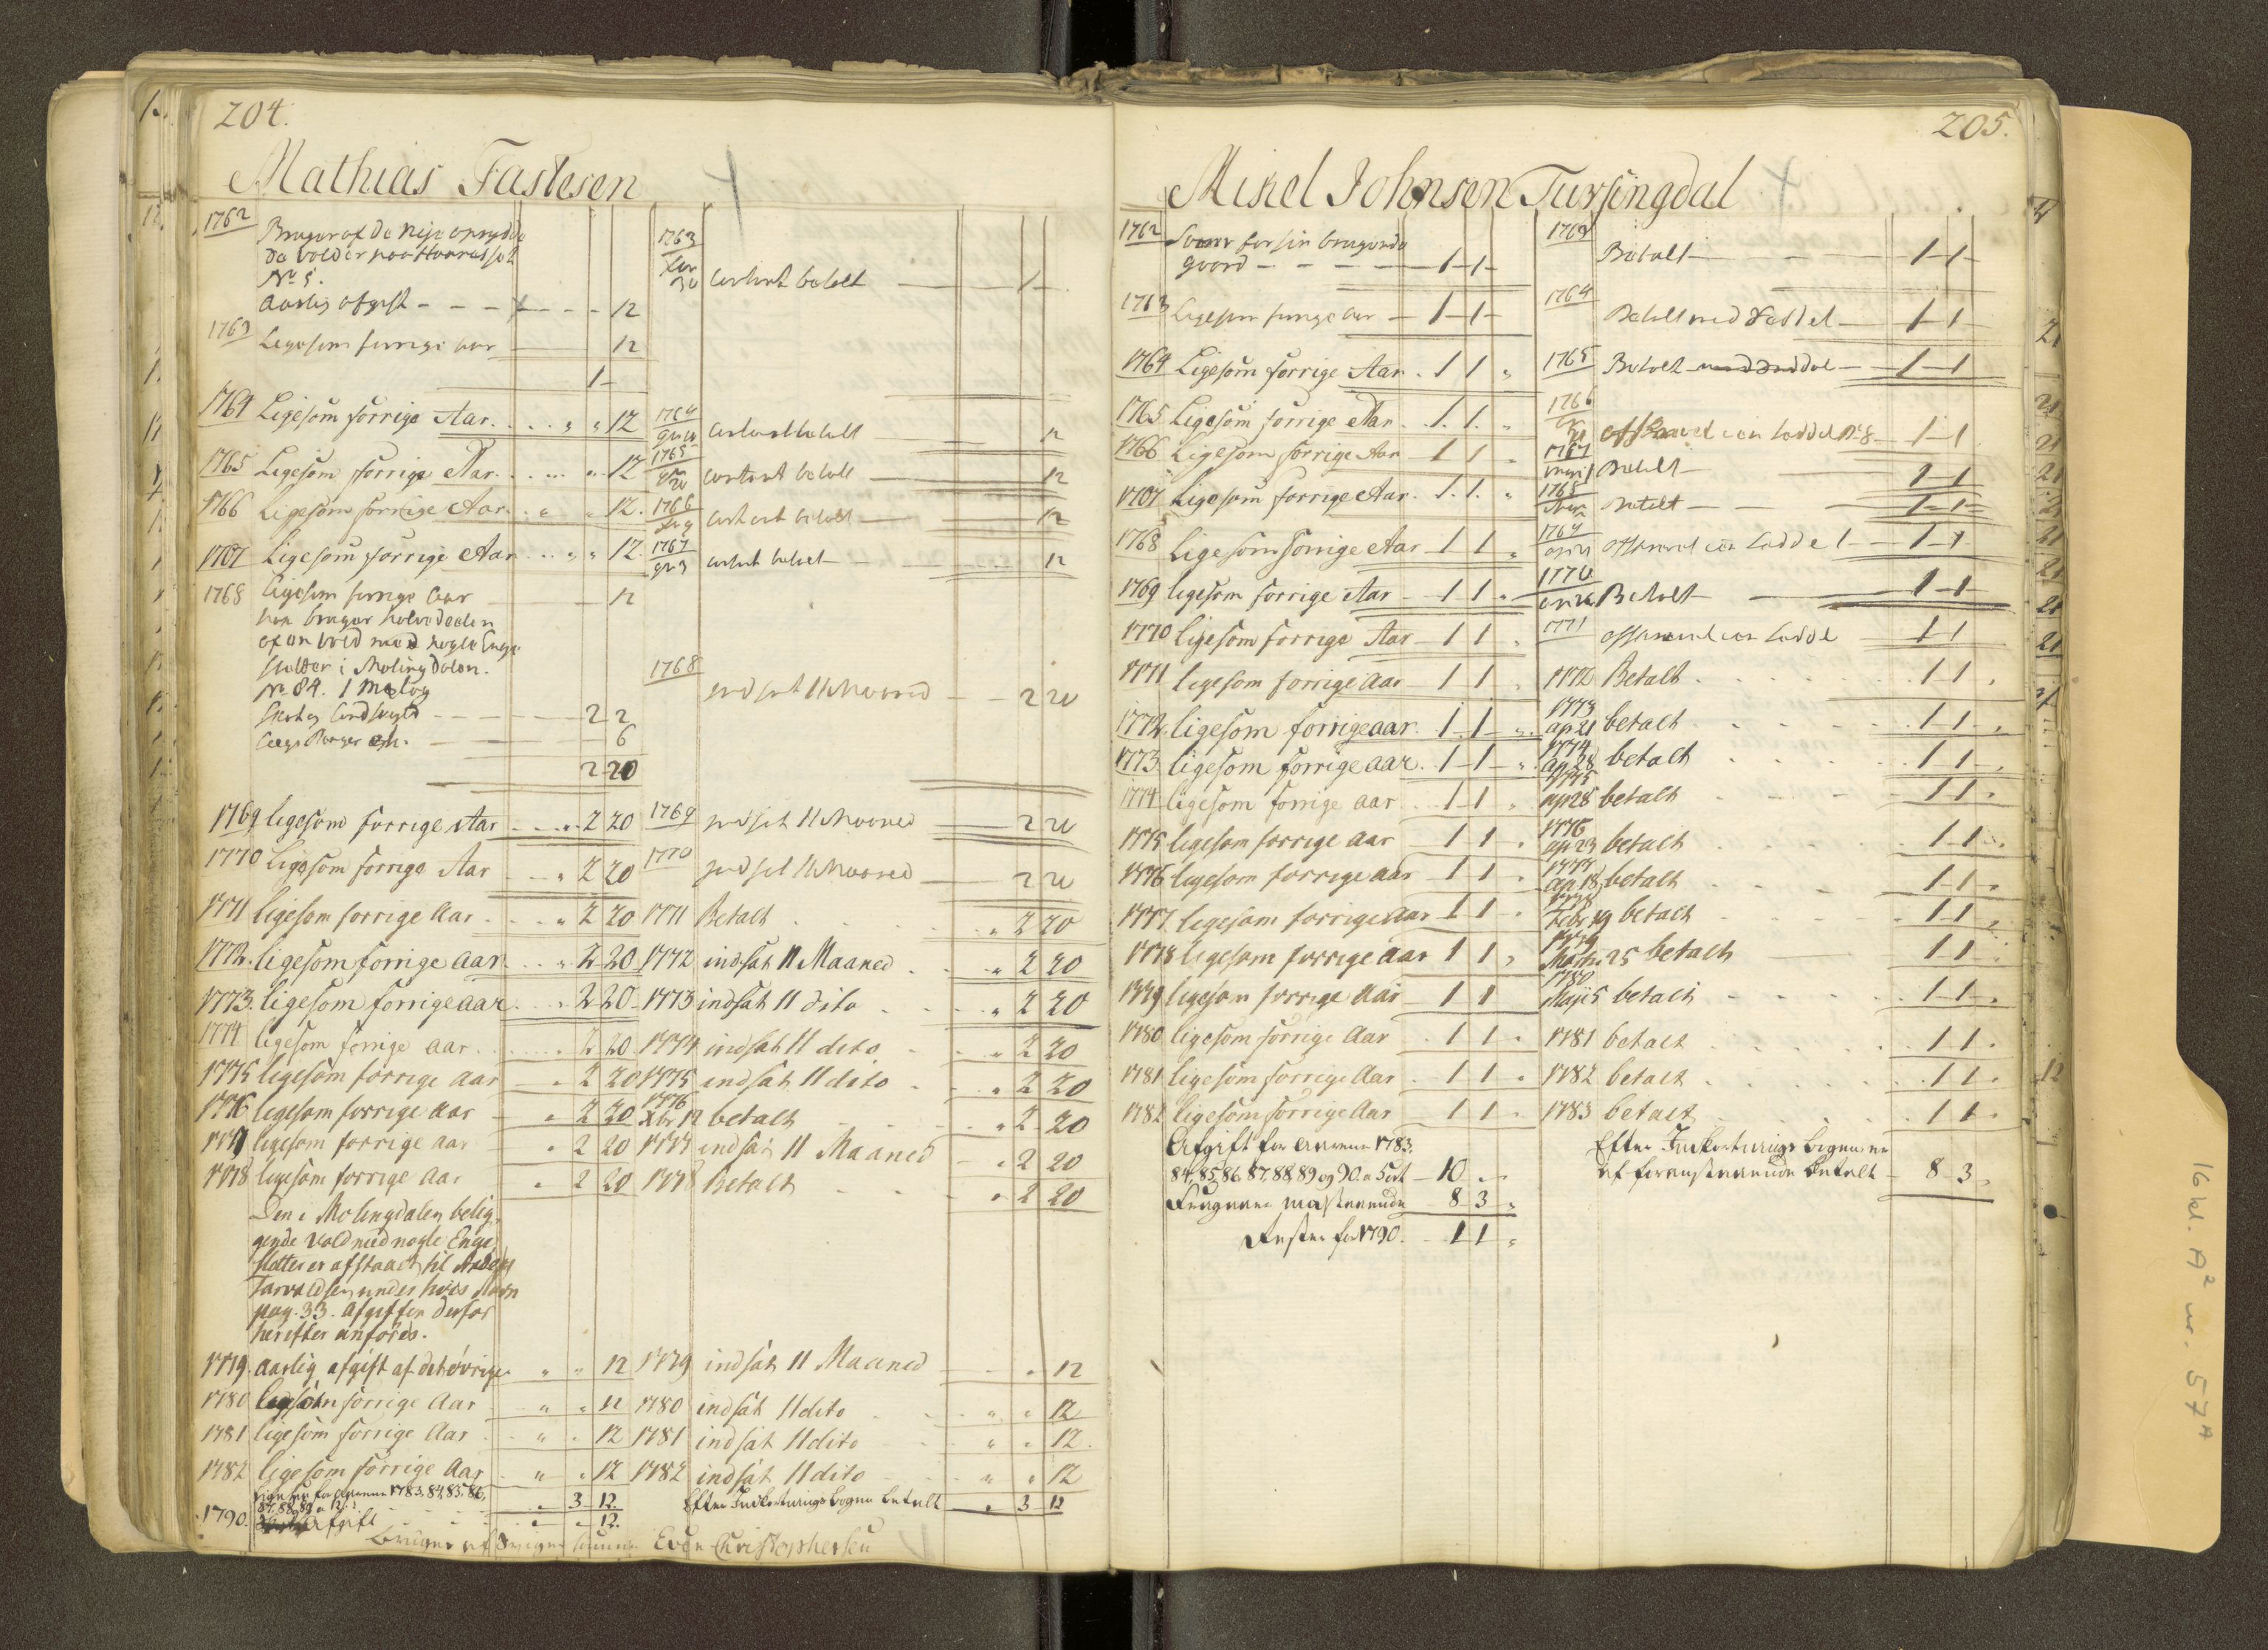 204.
Mathias Fastesen
1762 Bruger af de nye oprydde
de volder paa
No 5.
Aarlig afgift - - - - - - 12
1763 Ligesom forrige aar 12
1 -
1764 Ligesom forrige Aar. . . . " " 12
1765 Ligesom forrige Aar. . . . " 12
1766 Ligesom forrige Aar. . " . " 12.
1767 Ligesom forrige Aar . . " " 12.
1768 Ligesom forrige Aar 12
han bruger halvedeelen
af en vold med nogle Enge
sletter i Molingdalen.
No 84. 1 Mælog
Skat og Landskyld - - - 2 2
6
2 20
1769 ligesom forrige Aar - - - 2 20
1770 Ligesom forrige Aar - - " 2 20
1771 ligesom forrige Aar - - - " 2 20
1772. ligesom forrige aar. . . " 2 20
1773. ligesom forrige aar . . . " 2 20
1774 ligesom forrige aar. . . . . 2 20
1775 ligesom forrige Aar - " 2 20
1776 ligesom forrige Aar - " 2 20
1777 ligesom forrige aar " 2 20
1778 ligesom forrige Aar " 2 20
Den i Molingdalen belig-
gende Vold med nogle Enge
sletter er afstaaet til Anders
Tarvaldsen, under hvis Navn
pag. 33. afgiften derfor
herefter anföres.
1779. aarlig afgift af det övrige " " 12
1780 ligesom forrige Aar " " 12
1781 ligesom forrige Aar " " 12
1782 ligesom forrige Aar " " 12
Ligesom for Aarene 1783, 84, 85, 86,
87, 88, 89 a 12 s. " 3 12.
1790. Afgift " " 12.
Bruger af Even Christophersen
1763
30 contant betalt 1 -
1764 contant betalt 12
1765
20 contant betalt 12
1766
9 contant betalt 12
1767
3 contant betalt 12
1768
indsat 11 Maaned 2 20
1769 indsat 11 Maaned 2 20
1770 indsat 11 Maaned 2 20
1771 Betalt " 2 20
1772 indsat 11 Maaned . " 2 20
1773 indsat 11 dito . " 2 20
1774 indsat 11 dito . " 2 20
1775 indsat 11 dito . " 2 20
1776
Xbr 12 betalt " 2 20
1777 indsat 11 Maaned " 2 20
1778 Betalt " 2 20
1779 indsat 11 Maaned " 12
1780 indsat 11 dito " " 12
1781 indsat 11 dito " " 12.
1782 indsat 11 dito " " 12
Efter Indkortnings bogen betalt " 3 12
205.
Mikel Johnsen Tursingdal
1762 Svarer for sin brugende
gaard - - - - 1 - 1 -
1763 Ligesom forrige aar - 1 - 1 -
1764 Ligesom forrige Aar . 1 1 "
1765 Ligesom forrige Aar . 1. 1. "
1766 Ligesom forrige Aar - 1 1 "
1767 Ligesom forrige Aar. 1. 1. "
1768 Ligesom forrige Aar - 1 1 "
1769 ligesom forrige Aar - 1 1 "
1770 ligesom forrige Aar - 1 1 "
1771 ligesom forrige aar - 1 1 "
1772. ligesom forrige aar. 1 - 1 - "
1773. ligesom forrige aar. 1 - 1 - "
1774 ligesom forrige aar . 1 - 1 "
1775 ligesom forrige aar - 1 1 "
1776 ligesom forrige aar - 1 1 "
1777 ligesom forrige aar 1 1 "
1778 ligesom forrige aar 1 1 "
1779 ligesom forrige Aar - 1 1
1780 ligesom forrige Aar . 1 1 "
1781 ligesom forrige Aar . 1 1 "
1782 ligesom forrige Aar 1 1 "
Afgift for Aarene 1783,
84, 85, 86, 87, 88, 89 og 90. a 5 ort - 10 "
Fragaaer modstaaende 8 3 "
Rester for 1790. - 1 1 "
1763
Betalt - - - - - 1 - 1 -
1764
Betalt med Seddel - 1 - 1 -
1765 Betalt med Seddel - 1 - 1
1766
afskrevet een Seddel No 8 - 1 - 1
1767 Betalt - 1 - 1
1768 Betalt - - 1 - 1 -
1769
afskrevet een Seddel - 1 - 1
1770 Betalt 1 - 1
1771 afskrevet een Seddel 1 1
1772 Betalt . . . . 1 1 "
1773
ap 21 betalt . . . . 1 1 "
1774
ap 28 betalt . . . . 1 1 "
1775
ap 28 betalt . . . . 1 1 "
1776
ap 23 betalt . . . . 1 1 "
1777
ap 18 betalt . . . . 1 1 "
1778
Febr 19 betalt . . . . 1 1 "
1779
Marti 25 betalt 1 1 "
1780
Maji 5 betalt . . . . 1 1 "
1781 betalt . . . . 1 1 "
1782 betalt . . . . 1 1 "
1783 betalt . . . . 1 1 "
Efter Indkortnings bogen er
af foranstaaende betalt - 8 3 "
16 kl. A² nr. 57ᴬ